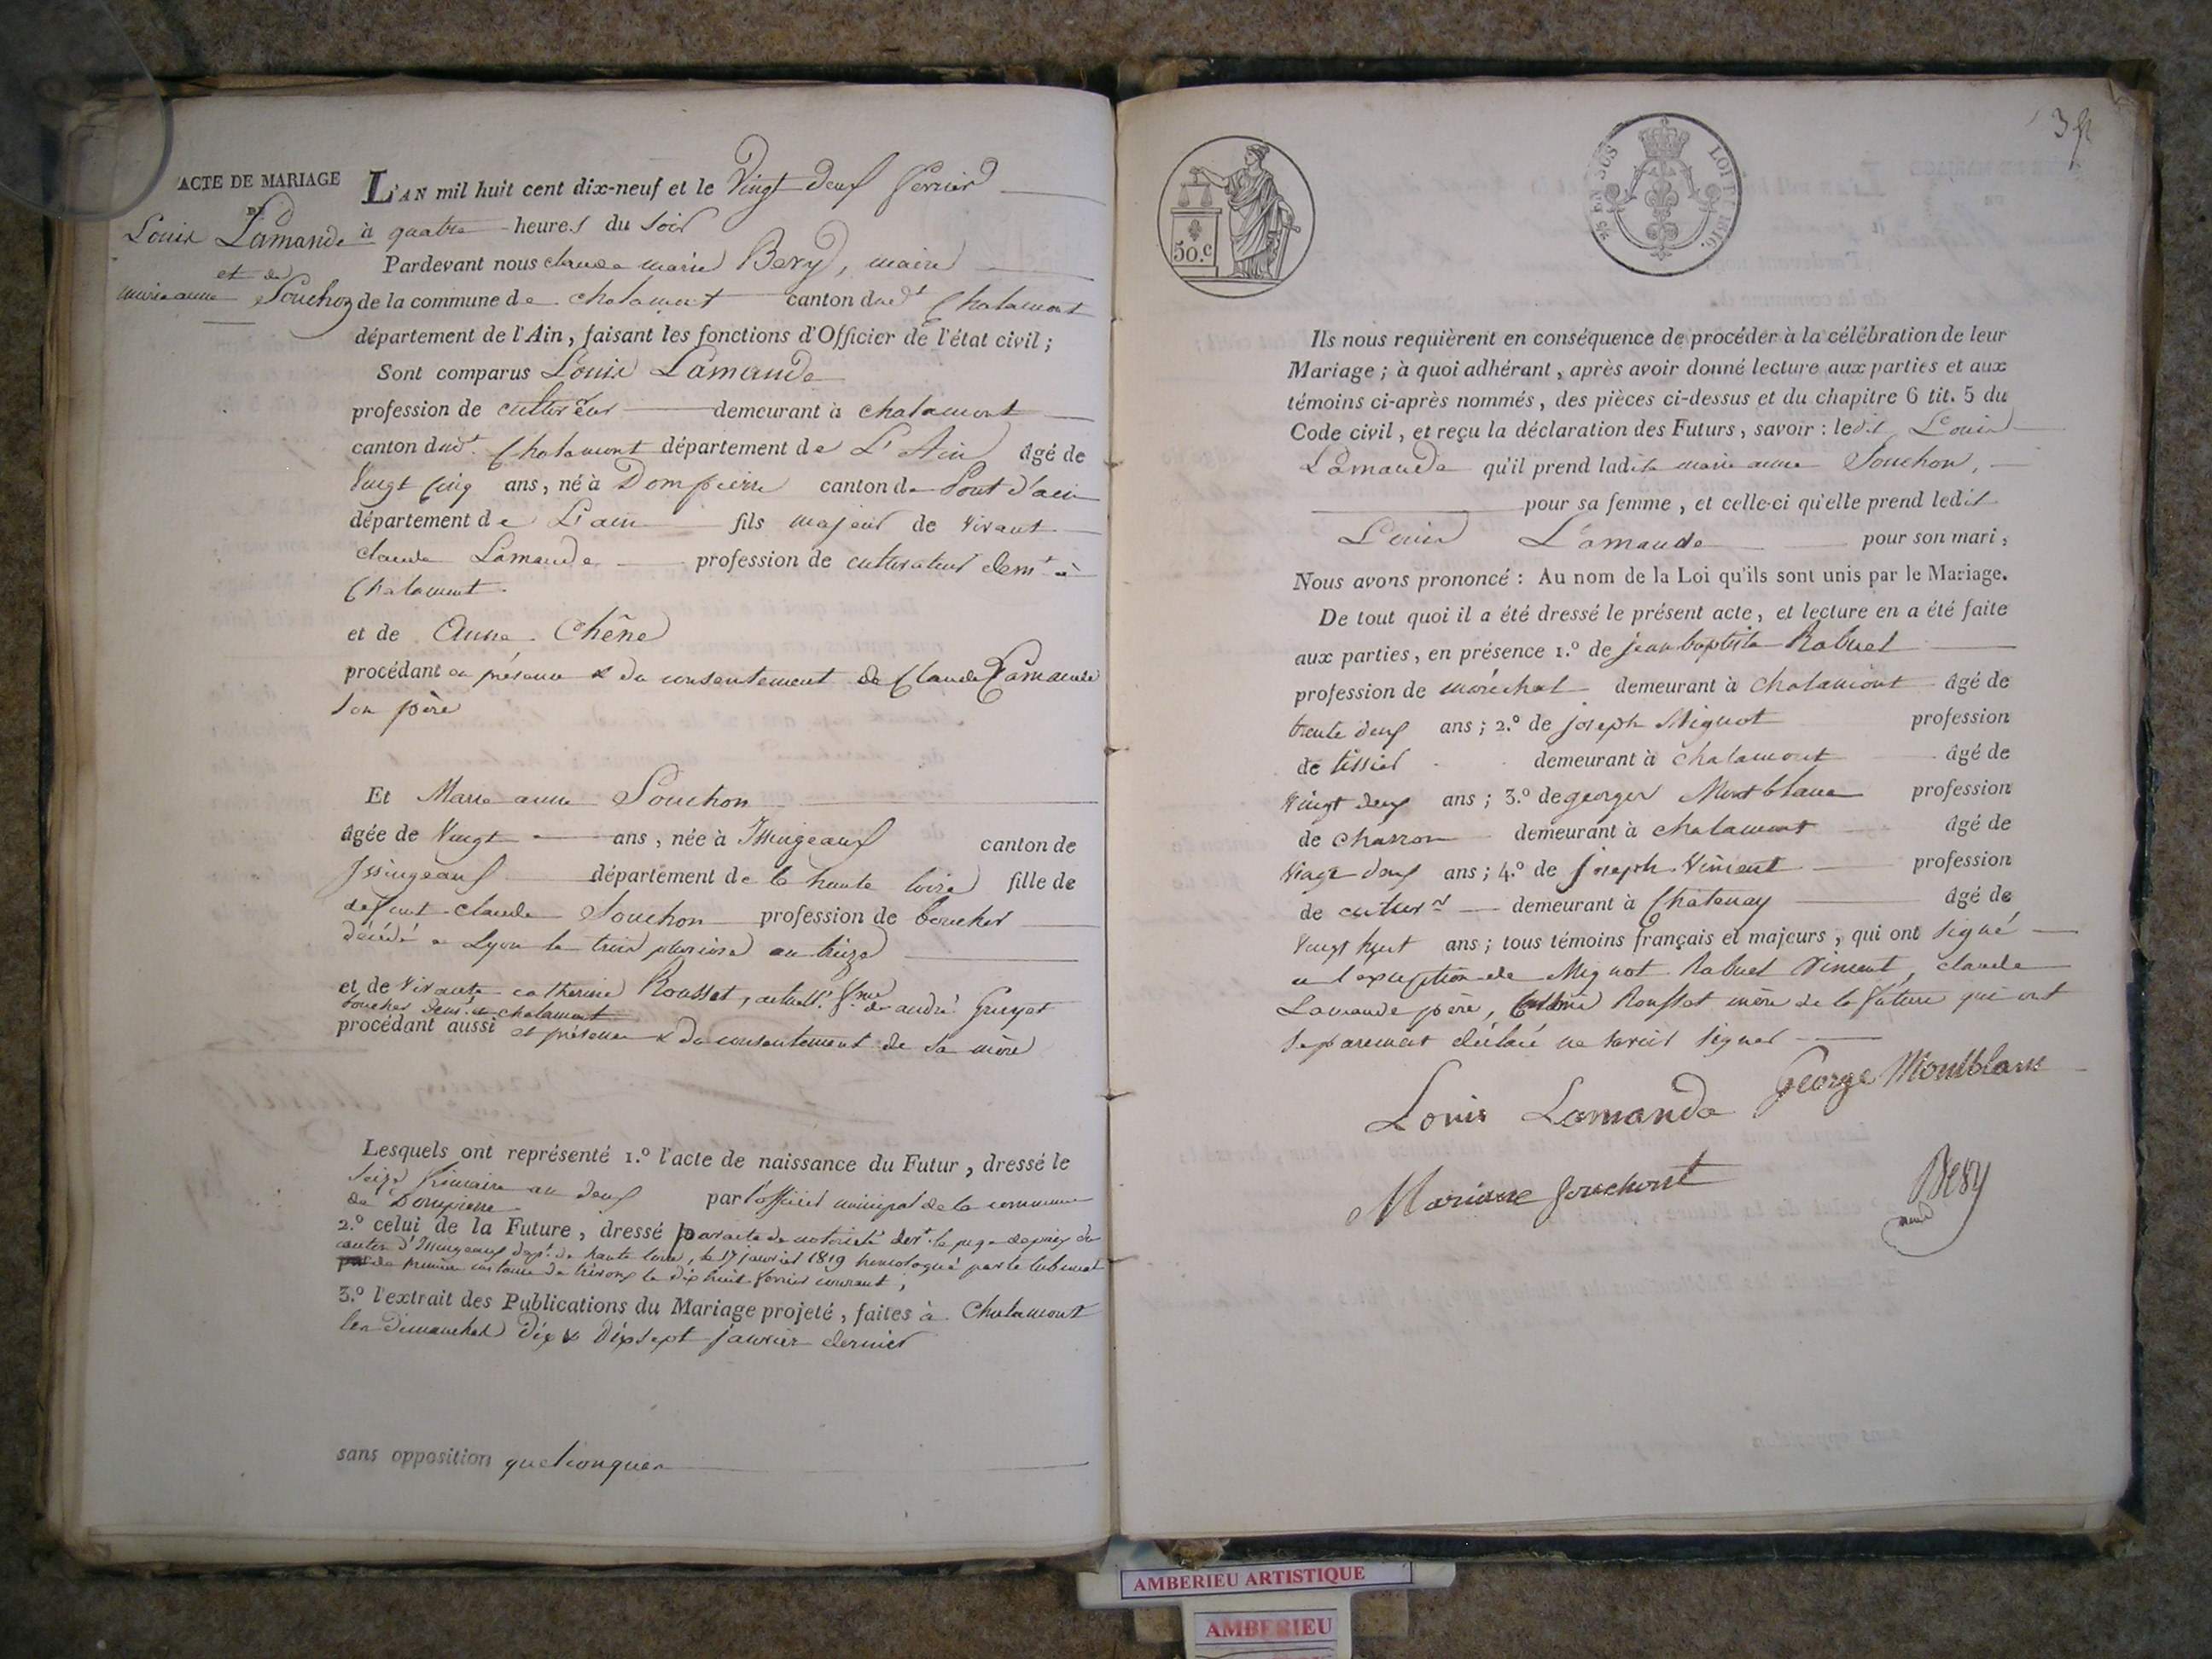 ACTE DE MARIAGE
DE
Louis Lamande
et de
marie anne Souchon
L'AN mil huit cent dix-neuf et le Vingt deux fevrier
à quatre heures du soir
Pardevant nous claude marie Bery, maire
de la commune de chalamont canton dudt Chalamont
département de l'Ain, faisant les fonctions d'Officier de l'état civil ;
Sont comparus Louis Lamande
profession de demeurant à chalamont
canton dudt. Chalamont département de L'Ain âgé de
Vingt Cinq ans, né à Dompierre canton de Pont d'ain
département de L'ain fils majeur de vivant
claude Lamande profession de cultivateur demt à
Chalamont
et de Anne Chêne
procédant en présence & du consentement de Claude Lamande
son père
Et Marie anne Souchon
âgée de Vingt ans, née à Issingeaux canton de
Issingeaux département de la haute loire fille de
defunt claude Souchon profession de boucher
décédé a Lyon le trois pluviose an treize
et de Vivante catherine Rousset, actuellt. fme de andré
boucher demt. a chalamont
procédant aussi en présence & du consentement de sa mère
Lesquels ont représenté 1.º l'acte de naissance du Futur, dressé le
seize frimaire an deux par l'officier municipal de la commune
de Dompierre
2.º celui de la Future, dressé par acte de notorieté devt. le juge de paix du
canton d'Issingeaux dept. de haute loire, le 17 janvier 1819 homologué par le tribunal
de premiere instance de trévoux le dix huit fevrier courant ;
3.º l'extrait des Publications du Mariage projeté, faites à Chalamont
les dimanches dix & dixsept janvier dernier
sans opposition quelconques
50.c
EN SUS
LOI DE 1816.
3
Ils nous requièrent en conséquence de procéder à la célébration de leur
Mariage ; à quoi adhérant, après avoir donné lecture aux parties et aux
témoins ci-après nommés, des pièces ci-dessus et du chapitre 6 tit. 5 du
Code civil, et reçu la déclaration des Futurs, savoir : ledit Louis
Lamande qu'il prend ladite marie anne Souchon,
pour sa femme, et celle-ci qu'elle prend ledit
Louis Lamande pour son mari ;
Nous avons prononcé : Au nom de la Loi qu'ils sont unis par le Mariage.
De tout quoi il a été dressé le présent acte, et lecture en a été faite
aux parties, en présence 1.º de jean baptiste Rabuel
profession de maréchal demeurant à chalamont âgé de
trente deux ans ; 2.º de joseph Mignot profession
de tissier demeurant à chalamont âgé de
vingt deux ans ; 3.º de georges Montblanc profession
de charron demeurant à chalamont âgé de
vingt deux ans ; 4.º de joseph Vincent profession
de demeurant à Chatenay âgé de
vingt huit ans ; tous témoins français et majeurs, qui ont signé
a l'exception de Mignot Rabuel Vincent, claude
Lamande père, Rousset mère de la future qui ont
separement déclaré ne savoir signer
George Montblanc
Louis Lamande
Mariane Souchont
Bery